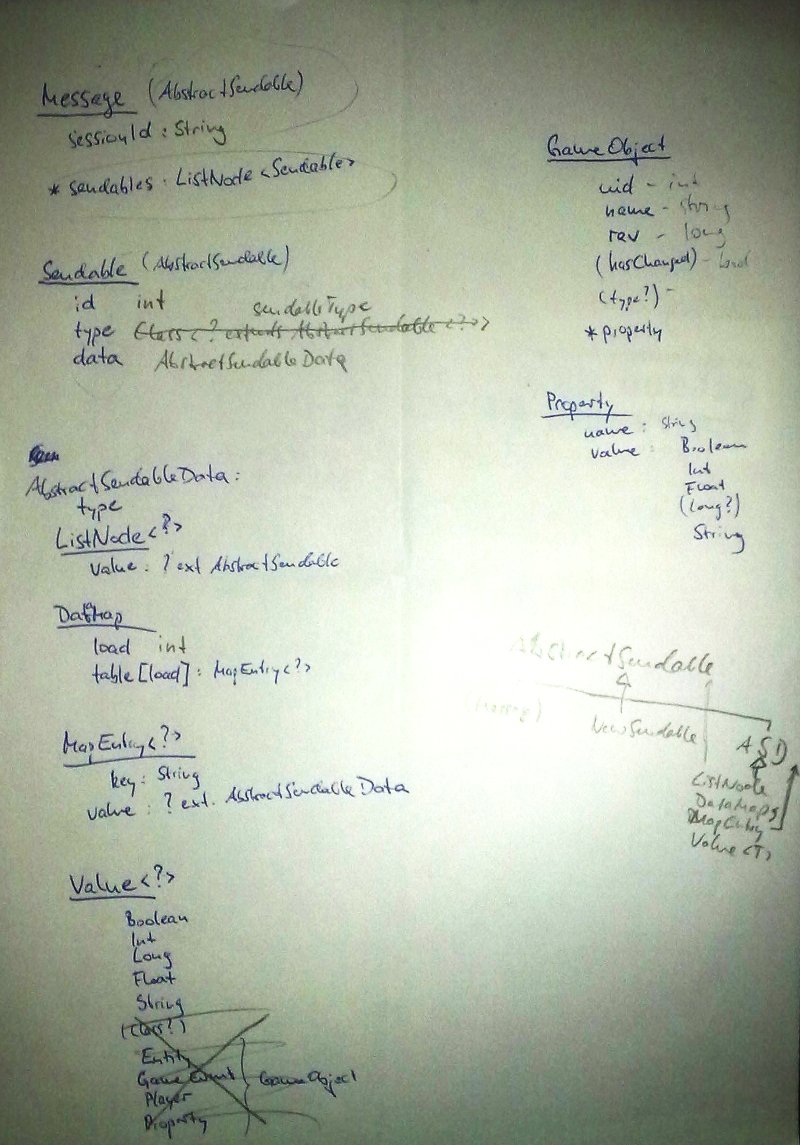 Message (AbstractSendable)
sessionId : String
* sendables : ListNode <Sendable>
Sendable (AbstractSendable)
id int
sendableType
type Class <? extends AbstractSendable <?>>
data AbstractSendableData
AbstractSendableData :
type
ListNode <?>
value : ? ext AbstractSendable
DataMap
load int
table [load] : MapEntry <?>
MapEntry <?>
key : String
value : ? ext. AbstractSendableData
Value <?>
Boolean
Int
Long
Float
String
(Class?)
Entity
GameEvent } GameObject
Player
Property
GameObject
uid - int
name - String
rev - long
(hasChanged) -
(type?) -
* property
Property
name : String
value : Boolean
Int
Float
(Long?)
String
AbstractSendable
NewSendable
ASD
ListNode
DataMap
MapEntry
Value <T>